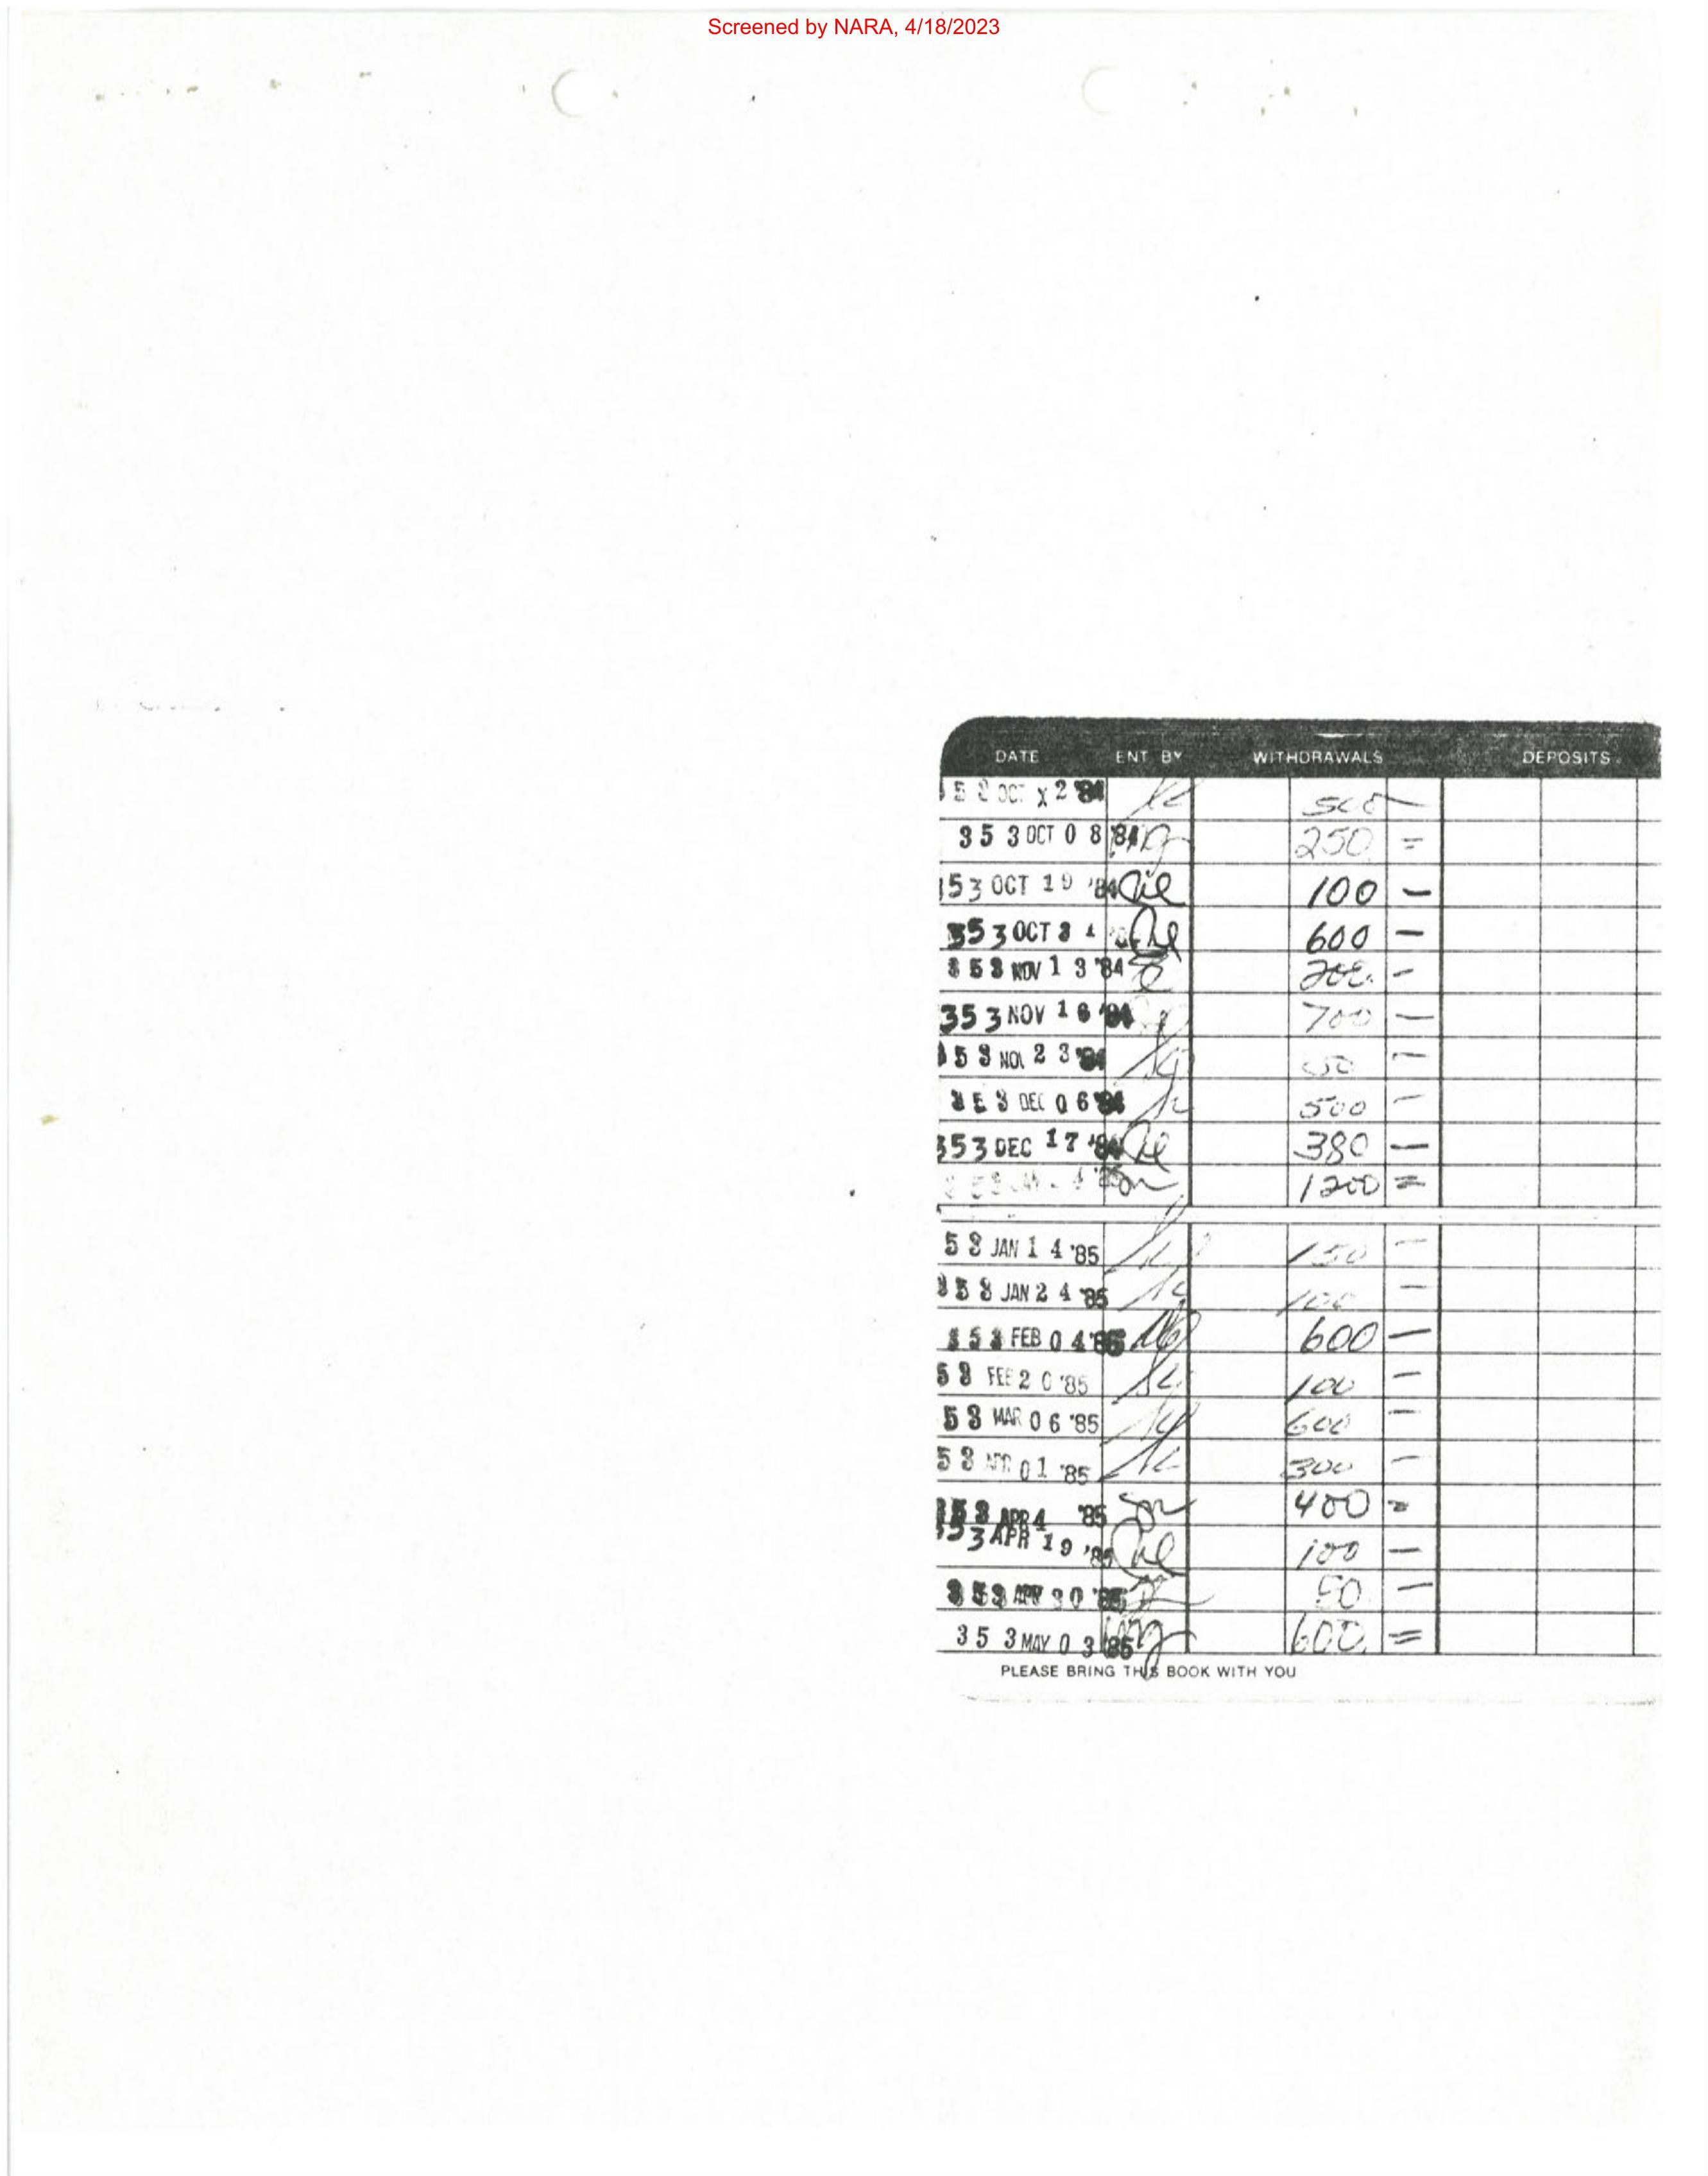 Screened by NARA, 4/18/2023
DATE ENT BY WITHDRAWALS DEPOSITS
OCT X 2 '84 500 —
353 OCT 08 '84 250 =
153 OCT 19 '84 100 —
353 OCT 600 —
353 NOV 13 '84 200. -
353 NOV 16 '84 700 —
53 NOV 23 '84 50 —
353 DEC 06 '84 500 —
353 DEC 17 '84 380 —
1200 =
53 JAN 14 '85 150 —
353 JAN 24 '85 100 —
353 FEB 04 '85 600 —
53 FEB 20 '85 100 —
53 MAR 06 '85 600 —
53 APR 01 '85 300 —
353 APR 4 '85 400 =
353 APR 19 '85 100 —
353 APR 30 '85 50 —
353 MAY 03 '85 600. =
PLEASE BRING THIS BOOK WITH YOU